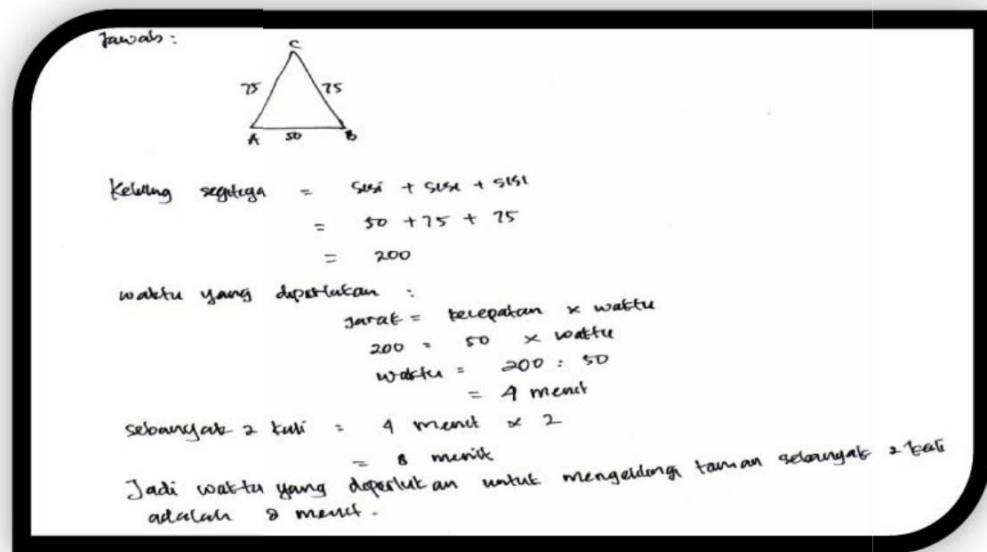 Jawab :
C
75 75
A 50 B
Keliling segitiga = sisi + sisi + sisi
= 50 + 75 + 75
= 200
waktu yang diperlukan :
Jarak = kecepatan x waktu
200 = 50 x waktu
waktu = 200 : 50
= 4 menit
sebanyak 2 kali = 4 menit x 2
= 8 menit
Jadi waktu yang diperlukan untuk mengelilingi taman sebanyak 2 kali
adalah 8 menit.